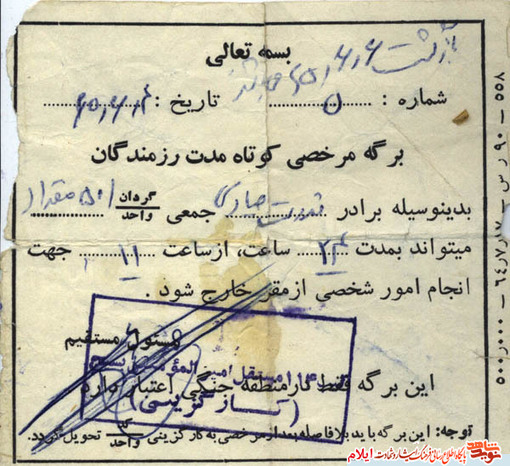 بازگشت ۶ر۶ر۶۵
بسمه تعالی
شماره : ۵ تاریخ : ۴ر۶ر۶۵
برگه مرخصی کوتاه مدت رزمندگان
بدینوسیله برادر قدرت جمعی گردان/واحد ۵۰۱ مقداد
میتواند بمدت ۲۴ ساعت، ازساعت ۱۱ جهت
انجام امور شخصی ازمقر خارج شود .
مسئول مستقیم
مستقل امیرالمؤمنین
این برگه فقط در منطقه جنگی اعتبار دارد
(کارگزینی)
توجه: این برگه باید بلافاصله بعد از مرخصی به کارگزینی گد/واحد تحویل گردد.
۵۵۸ – ۹۰ رس – ۷ر۷ر۶۴ – ۵۰۰ر۰۰۰
نوید شاهد
پایگاه اطلاع رسانی فرهنگ ایثار و شهادت ایلام